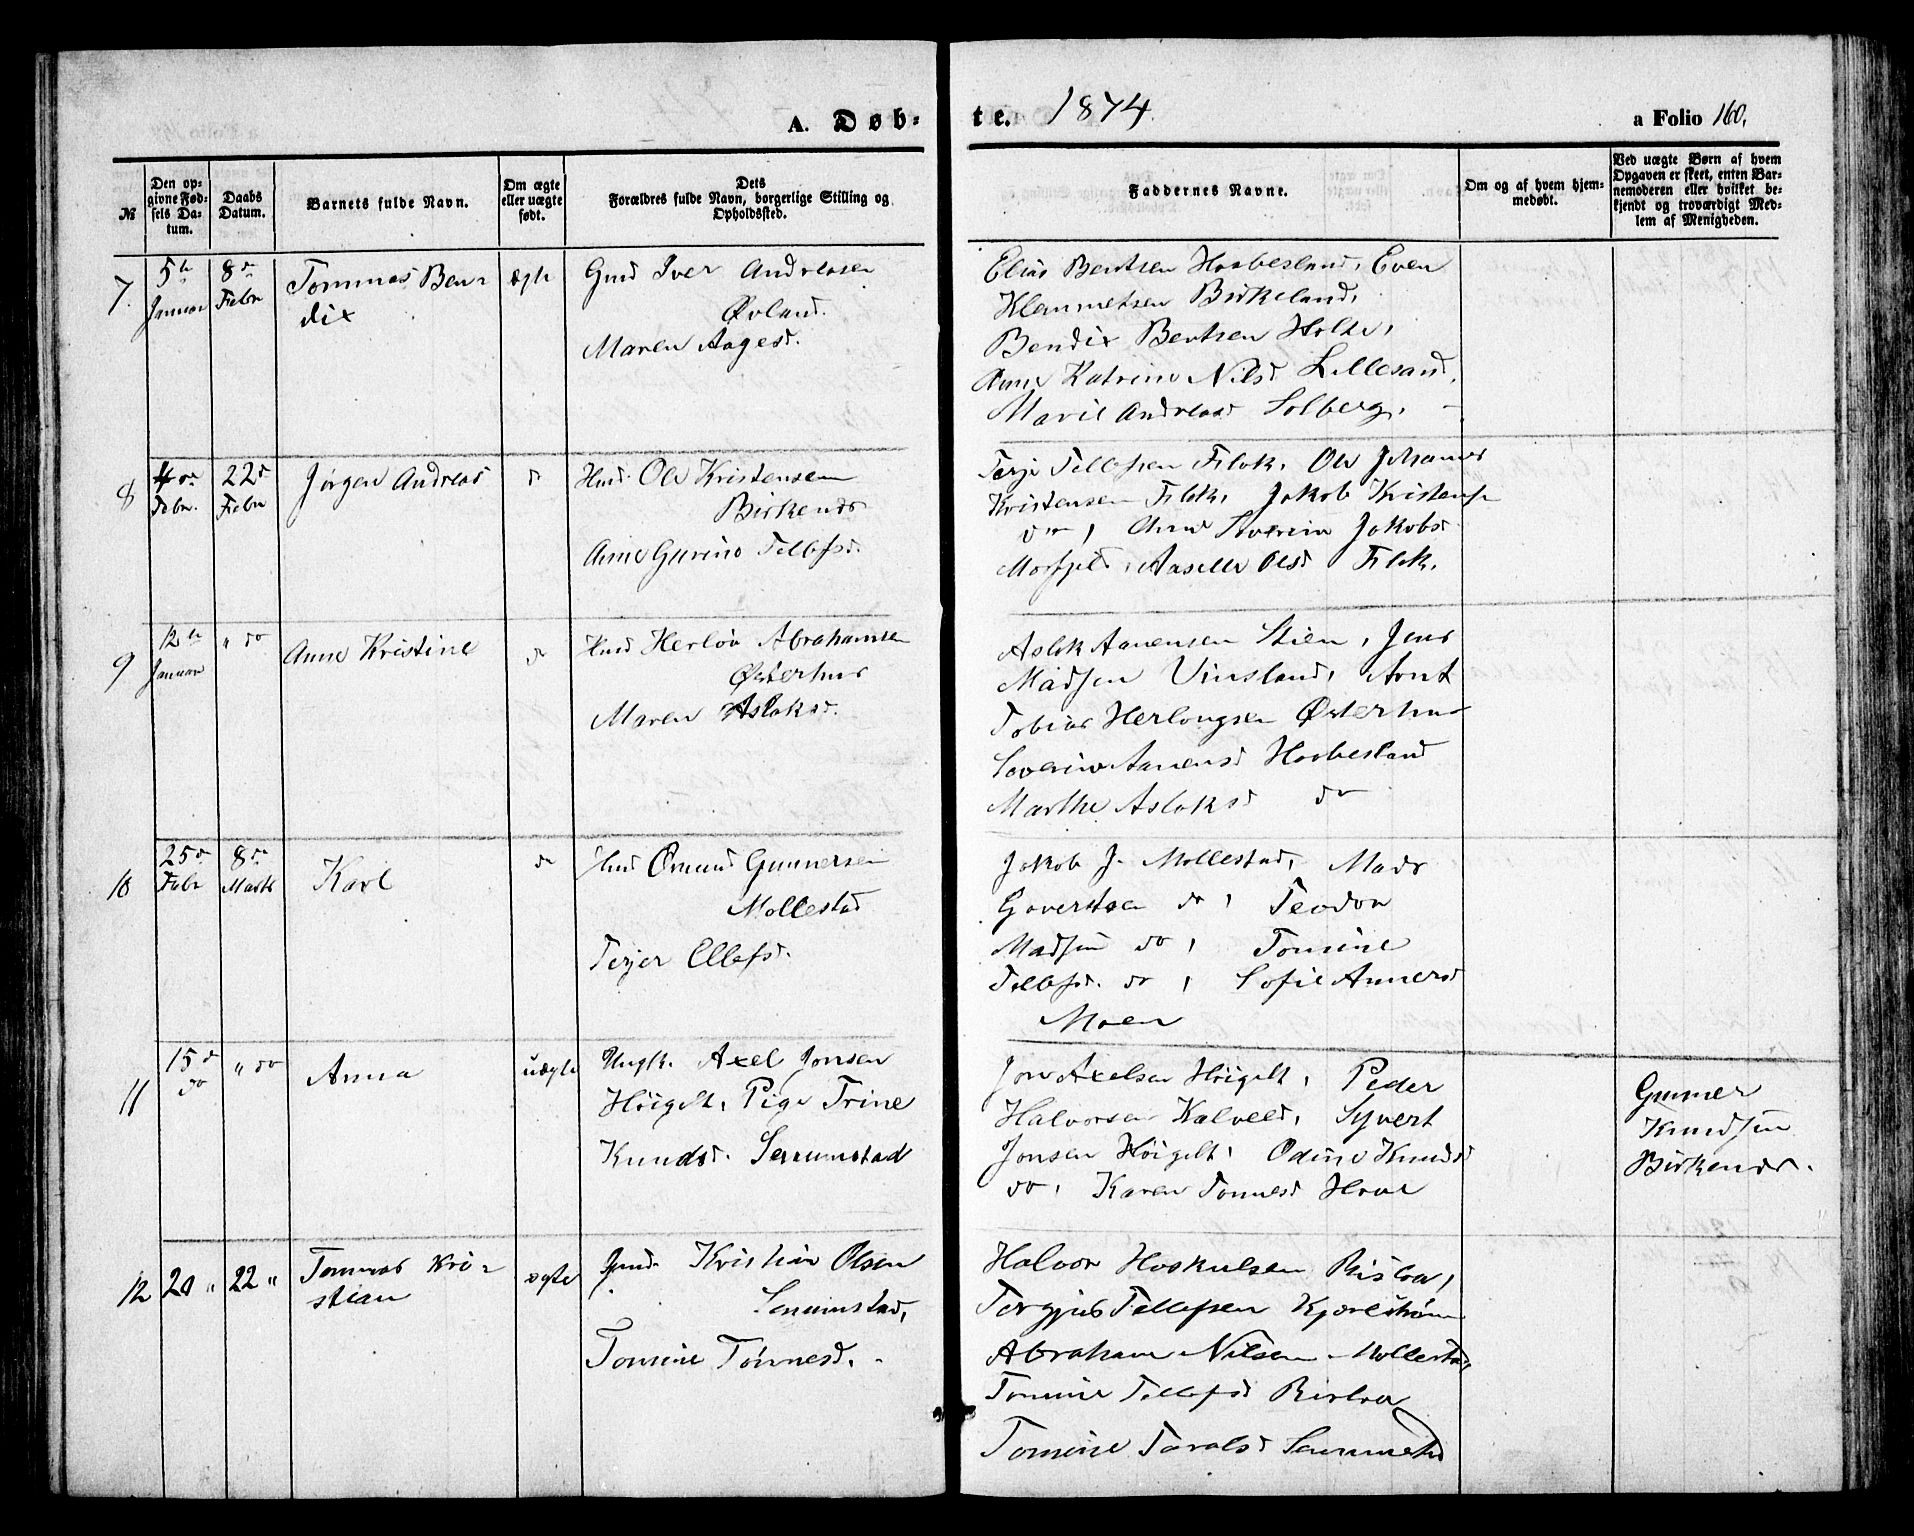 A. Døb-
te. 1874.
a Folio 160.
№
Den op-
givne Fød-
sels Da-
tum.
Daabs
Datum.
Barnets fulde Navn.
Om ægte
eller uægte
født.
Dets
Forældres fulde Navn, borgerlige Stilling og
Opholdssted.
Faddernes Navne.
Om og af hvem hjem-
medøbt.
Ved uægte Børn af hvem
Opgaven er skeet, enten Bar-
nemoderen eller hvilket be-
kjendt og troværdigt Med-
lem af Menigheden.
7.
5te
Januar
8de
Febr
Tommas Ben-
dix
ægte
Gmd Iver Andreasen
Øvland.
Maren Aagesd.
Elias Bentsen Haabesland, Even
Klemmetsen Birkeland,
Bendix Bentsen Holte,
Anne Katrine Nilsd Lillesand,
Marie Andreasd Solberg.
8
4de
Febr.
22d
Febr
Jørgen Andreas
do
Hmd. Ole Kristensen
Birkenes
Anne Gurine Tellefsd.
Terje Tellefsen Flak, Ole Johannes
Kristensen Flak, Jakob Kristens
do, Anne Severine Jakobsd
Aaselle Olsd Flak.
9
12te
Januar
" do
Anne Kristine
do
Hmd Herlöv Abrahamsen
Østerhus
Maren Aslaksd.
Aslak Aanensen Stien, Jens
Madsen Vinsland, Arnt
Tobias Herlougsen Østerhus
Severine Aanensd Haabesland
Marthe Aslaksd do
10
25d
Febr
8de
Marts
Karl
do
Hmd Ömund Gunnersen
Mollestad
Terjer Ellefsd.
Jakob J. Mollestad, Mads
Govertsen do, Teodor
Madsen do, Tomine
Tellefsd. do, Sofie Annersd
Moen
11
15d
do
" do
Anna
uægte
Ungk. Axel Jonsen
Höigelt, Pige Trine
Knudsd. Senumstad
Jon Axelsen Höigelt, Peder
Halvorsen Kalveld, Syvert
Jonsen Höigelt, Odine Knudsd
do, Karen Tommesd Hove
Gunner
Knudsen
Birkenes.
12
20 "
22 "
Tommas Kri-
stian
ægte
Gmd. Kristian Olsen
Senumstad,
Tomine Tönnesd.
Halvor Hoskulsen Risløa,
Tergjus Tellefsen Kjærlström
Abraham Nilsen Mollestad,
Tomine Tellefsd Risløa
Tomine Taralsd Senumstad